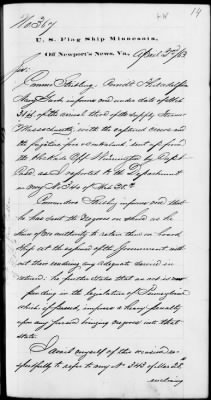 No 367
14
U. S. Flag Ship Minnesota,
Off Newport's News, Va., April 2nd/63
Sir:
Commo Stribling, Comdt Philadelphia
Navy Yard informs me under date of Mch
31st of the arrival there of the supply steamer
Massachusetts, with the captured crews and
the fugitives from
the blockade off Wilmington by
as I reported to the Department
in my No 340 of Mch 30th
Commodore Stribling informs me that
he has sent the negroes on shore as he
knew of no authority to retain them on board
ship at the expense of the Government with-
out their rendering any adequate service in
return: he further states that an act is now
pending in the legislature of Pennsylvania
which, if passed, imposes a heavy penalty
upon any person bringing negroes into that
state.
I avail myself of this occasion re-
spectfully to refer to my No 343 of Mar 30th
enclosing